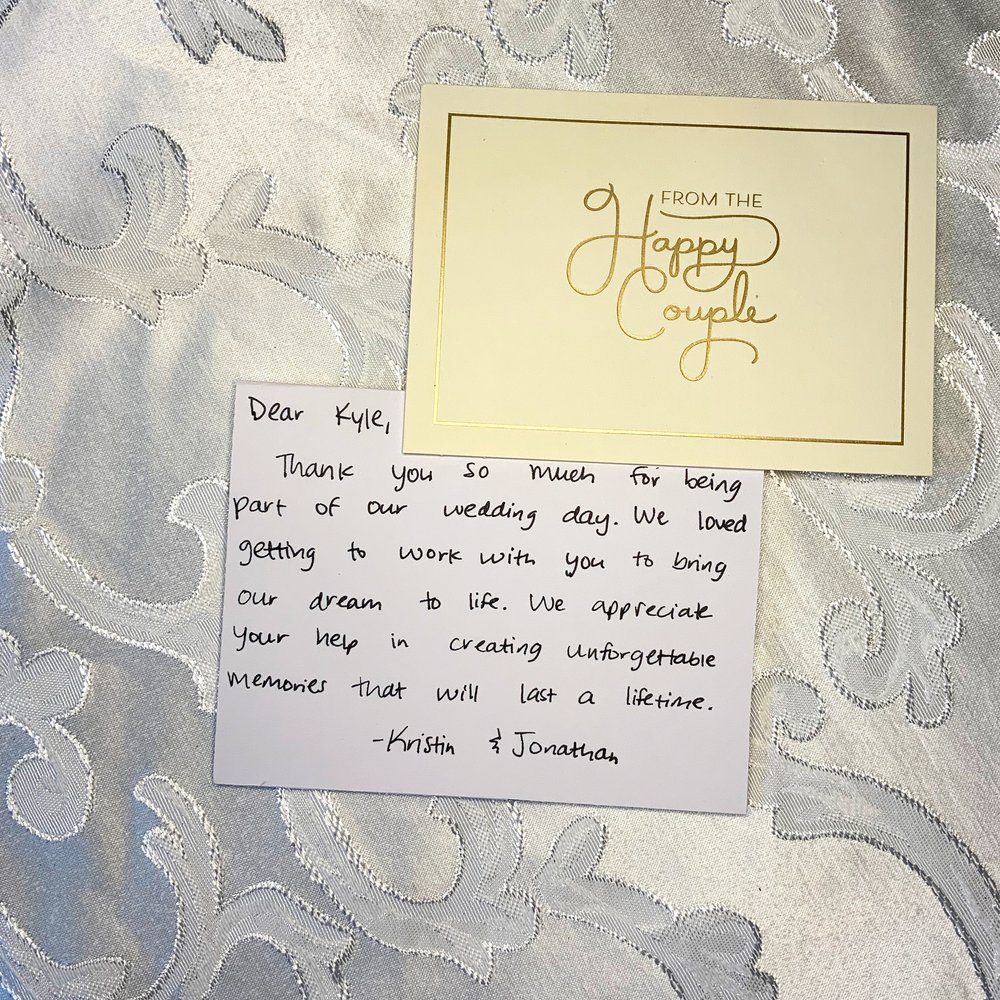 FROM THE
Happy
Couple
Dear Kyle,
Thank you so much for being
part of our wedding day. We loved
getting to work with you to bring
our dream to life. We appreciate
your help in creating unforgettable
memories that will last a lifetime.
-Kristin & Jonathan